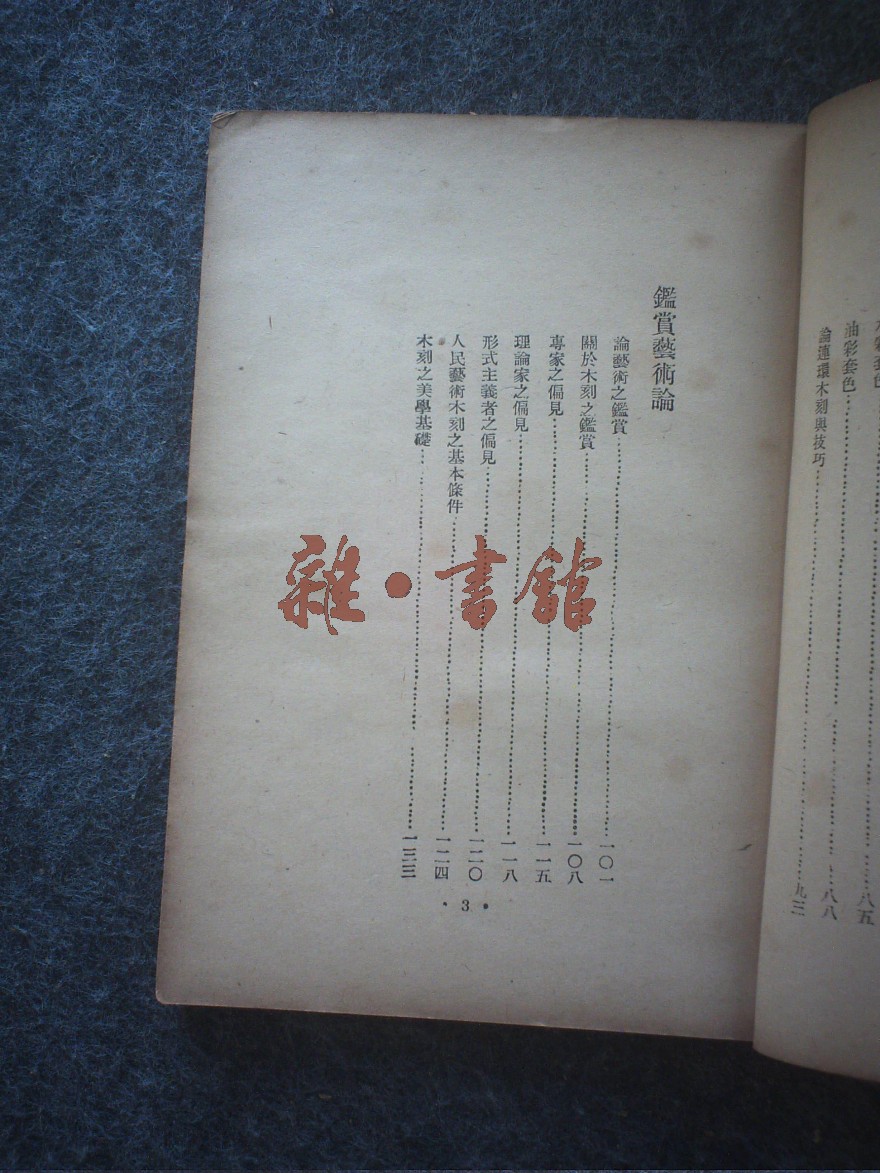 八五
油彩套色……八八
論連環木刻與技巧……九三
鑑賞藝術論
論藝術之鑑賞……一〇一
關於木刻之鑑賞……一〇八
專家之偏見……一一五
理論家之偏見……一一八
形式主義者之偏見……一二〇
人民藝術木刻之基本條件……一二四
木刻之美學基礎……一三三
·3·
雜·書館